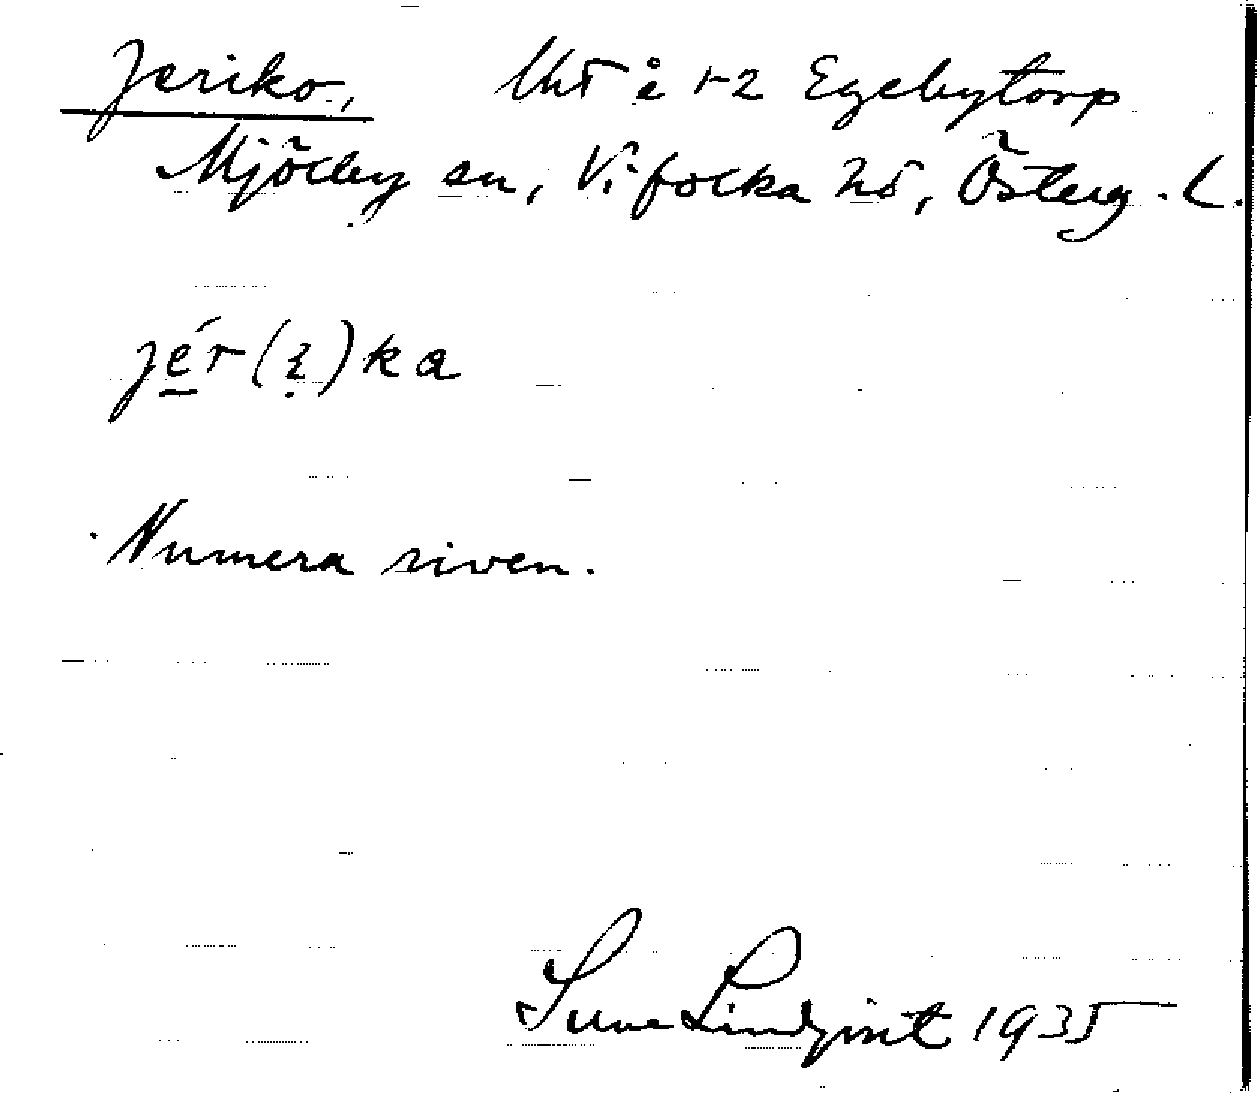 Jeriko, Uht å 1-2 Egebytorp
Mjölby sn, Vifolka hd, Österg. L.
jér(i)ka
Numera riven.
Sune Lindqvist 1935